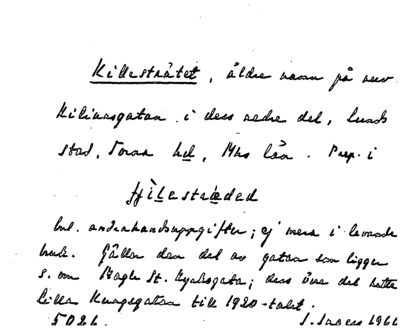 Killesträtet, äldre namn på nuv.
Kiliansgatan i dess nedre del, Lunds
stad, Torna hd, Mhs län. Prep. i
hìlestræded
enl. andrahandsuppgifter; ej mera i levande
bruk. Gäller den del av gatan som ligger
s. om Stora St. Kyrkogata; dess övre del hette
Lilla Kungsgatan till 1920-talet.
5026. S. Ingers 1966